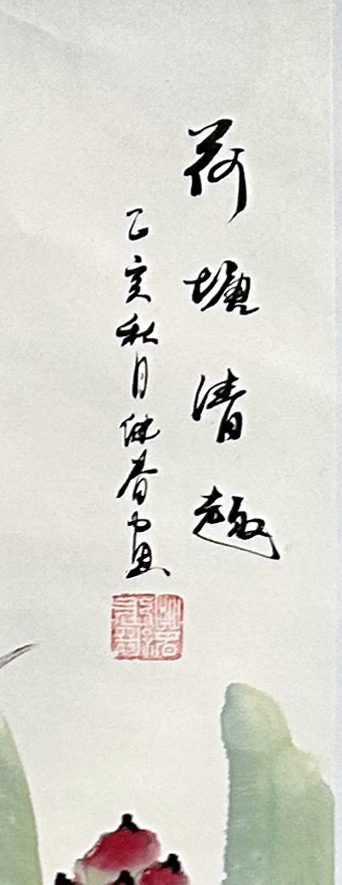 荷塘清趣
乙亥秋月健春画